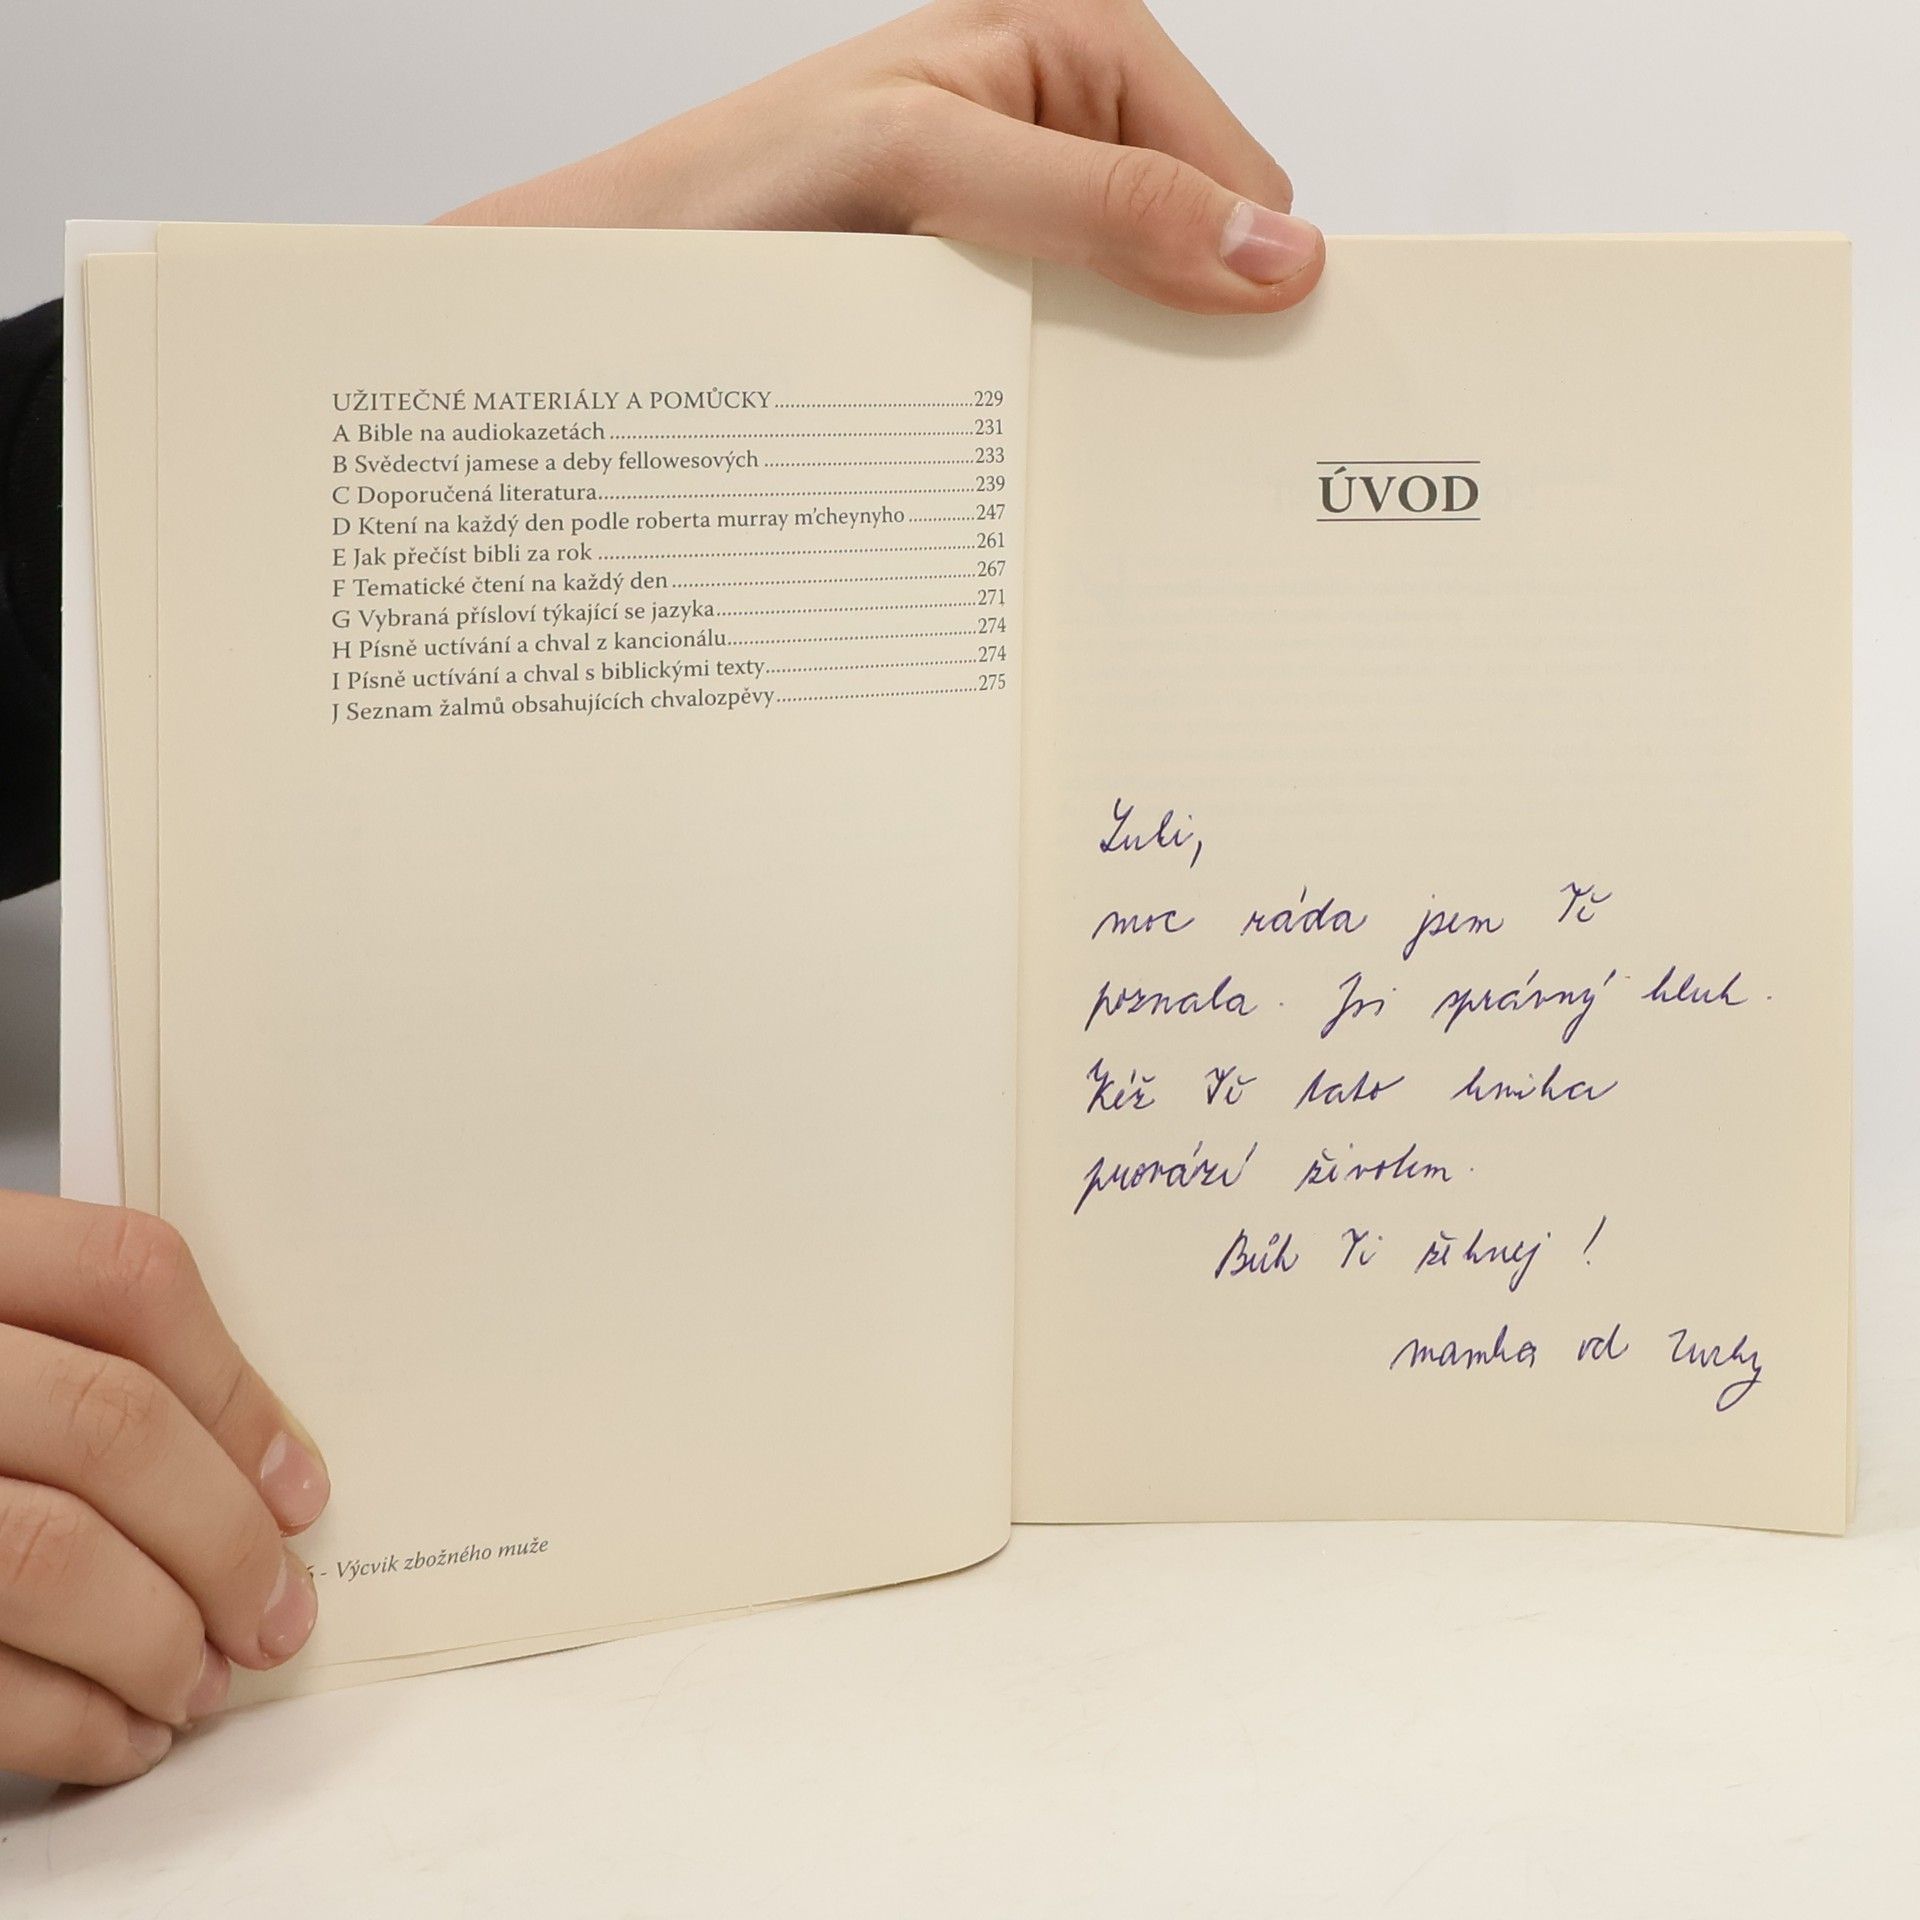 UŽITEČNÉ MATERIÁLY A POMŮCKY......229
A Bible na audiokazetách......231
B Svědectví jamese a deby fellowesových......233
C Doporučená literatura......239
D Ktení na každý den podle roberta murray m'cheynyho......247
E Jak přečíst bibli za rok......261
F Tematické čtení na každý den......267
G Vybraná přísloví týkající se jazyka......271
H Písně uctívání a chval z kancionálu......274
I Písně uctívání a chval s biblickými texty......274
J Seznam žalmů obsahujících chvalozpěvy......275
- Výcvik zbožného muže
ÚVOD
moc ráda jsem Tě
poznala. Jsi správný kluk.
Kéž Tě tato kniha
provází životem.
Bůh Ti žehnej!
mamka od Zuzky